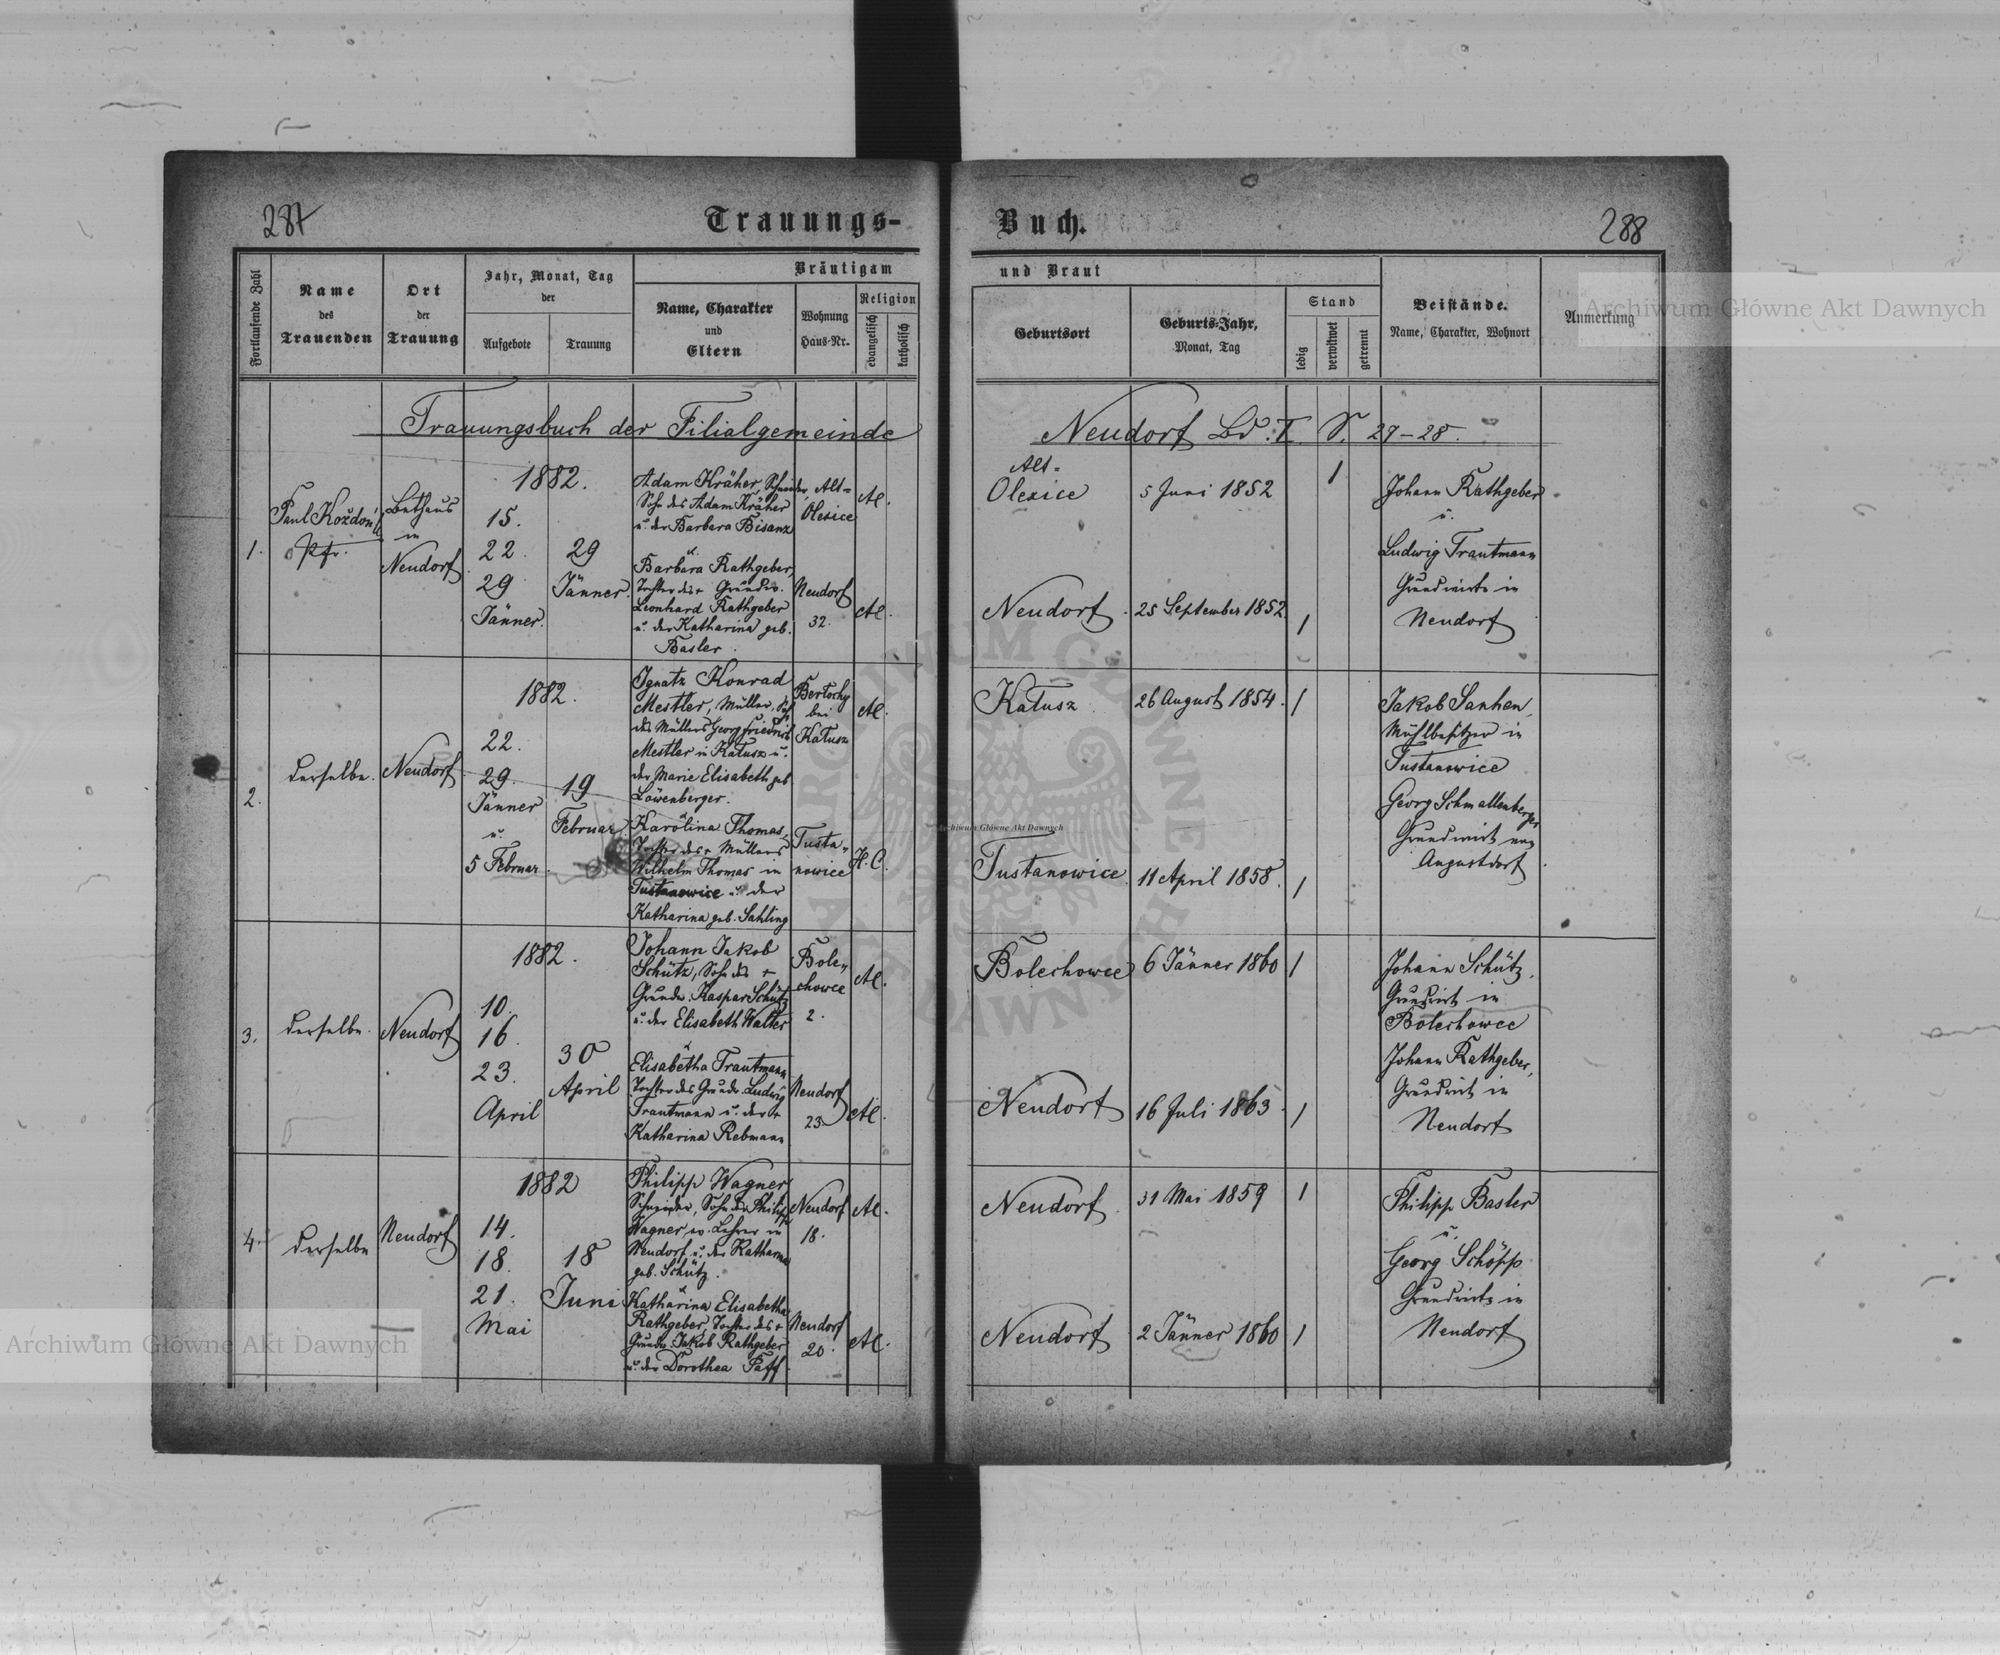 287
Trauungs-
Buch.
288
Fortlaufende Zahl
Name
des
Trauenden
Ort
der
Trauung
Jahr, Monat, Tag
der
Aufgebote
Trauung
Bräutigam
Name, Charakter
und
Eltern
Wohnung
Haus-Nr.
Religion
evangelisch
katholisch
und Braut
Geburtsort
Geburts-Jahr,
Monat, Tag
Stand
ledig
verwitwet
getrennt
Beistände.
Name, Charakter, Wohnort
Anmerkung
Trauungsbuch der Filialgemeinde
Neudorf Bd. I S. 27-28.
1.
Paul Koždoń
Pfr.
Bethaus
in
Neudorf
1882.
15.
22.
29
Jänner.
29
Jänner.
Adam Kräher, Schneider,
Sohn des Adam Kräher
u. der Barbara Bisanz
u.
Barbara Rathgeber
Tochter des + Grundw.
Leonhard Rathgeber
u. der Katharina geb.
Basler.
Alt-
Olexice
Neudorf
32.
A.
A.
Alt-
Olexice
5 Juni 1852
1
Neudorf.
25 September 1852
1
Johann Rathgeber
u.
Ludwig Trautmann
Grundwirte in
Neudorf
2.
derselbe.
Neudorf
1882.
22.
29.
Jänner
u.
5 Februar.
19
Februar
Ignatz Konrad
Mestler, Müller, Sohn
des Müllers Georg Friedrich
Mestler in Katusz u.
der Marie Elisabeth geb
Löwenberger.
Karolina Thomas,
Tochter des + Müllers
Wilhelm Thomas in
Tustanowice u. der
Katharina geb. Sahling
bei
Katusz
Tusta-
nowice
A.
H.C.
Katusz
26 August 1854.
1
Tustanowice.
11 April 1858.
1
Jakob Sanhen,
Mühlbesitzer in
Tustanowice
Georg Schmallenberger
Grundwirt aus
Augustdorf.
3.
derselbe.
Neudorf
1882.
10.
16.
23.
April
30
April
Johann Jakob
Schütz, Sohn des +
Grundw. Kaspar Schütz
u. der Elisabeth Walter
u
Elisabetha Trautmann
Tochter des Grundw. Ludwig
Trautmann u. der +
Katharina Rebmann
Bole-
chowce
2.
Neudorf
23
A.
A.
Bolechowce
6 Jänner 1860
1
Neudorf
16 Juli 1863.
1
Johann Schütz,
Grundwirt in
Bolechowce
Johann Rathgeber,
Grundwirt in
Neudorf
4.
derselbe
Neudorf
1882
14.
18.
21.
Mai
18
Juni
Philipp Wagner
Schneider, Sohn des Philipp
Wagner ev. Lehrer in
Neudorf u. der Katharina
geb. Schütz.
u
Katharina Elisabetha
Rathgeber, Tochter des +
Grundw. Jakob Rathgeber
u. der Dorothea Faff
Neudorf
18.
Neudorf
20.
A.
A.
Neudorf.
31 Mai 1859
1
Neudorf
2 Jänner 1860
1
Philipp Basler
u.
Georg Schöpp
Grundwirte in
Neudorf
Archiwum Główne Akt Dawnych
Archiwum Główne Akt Dawnych
Archiwum Główne Akt Dawnych
ARCHIWUM GŁÓWNE
AKT DAWNYCH